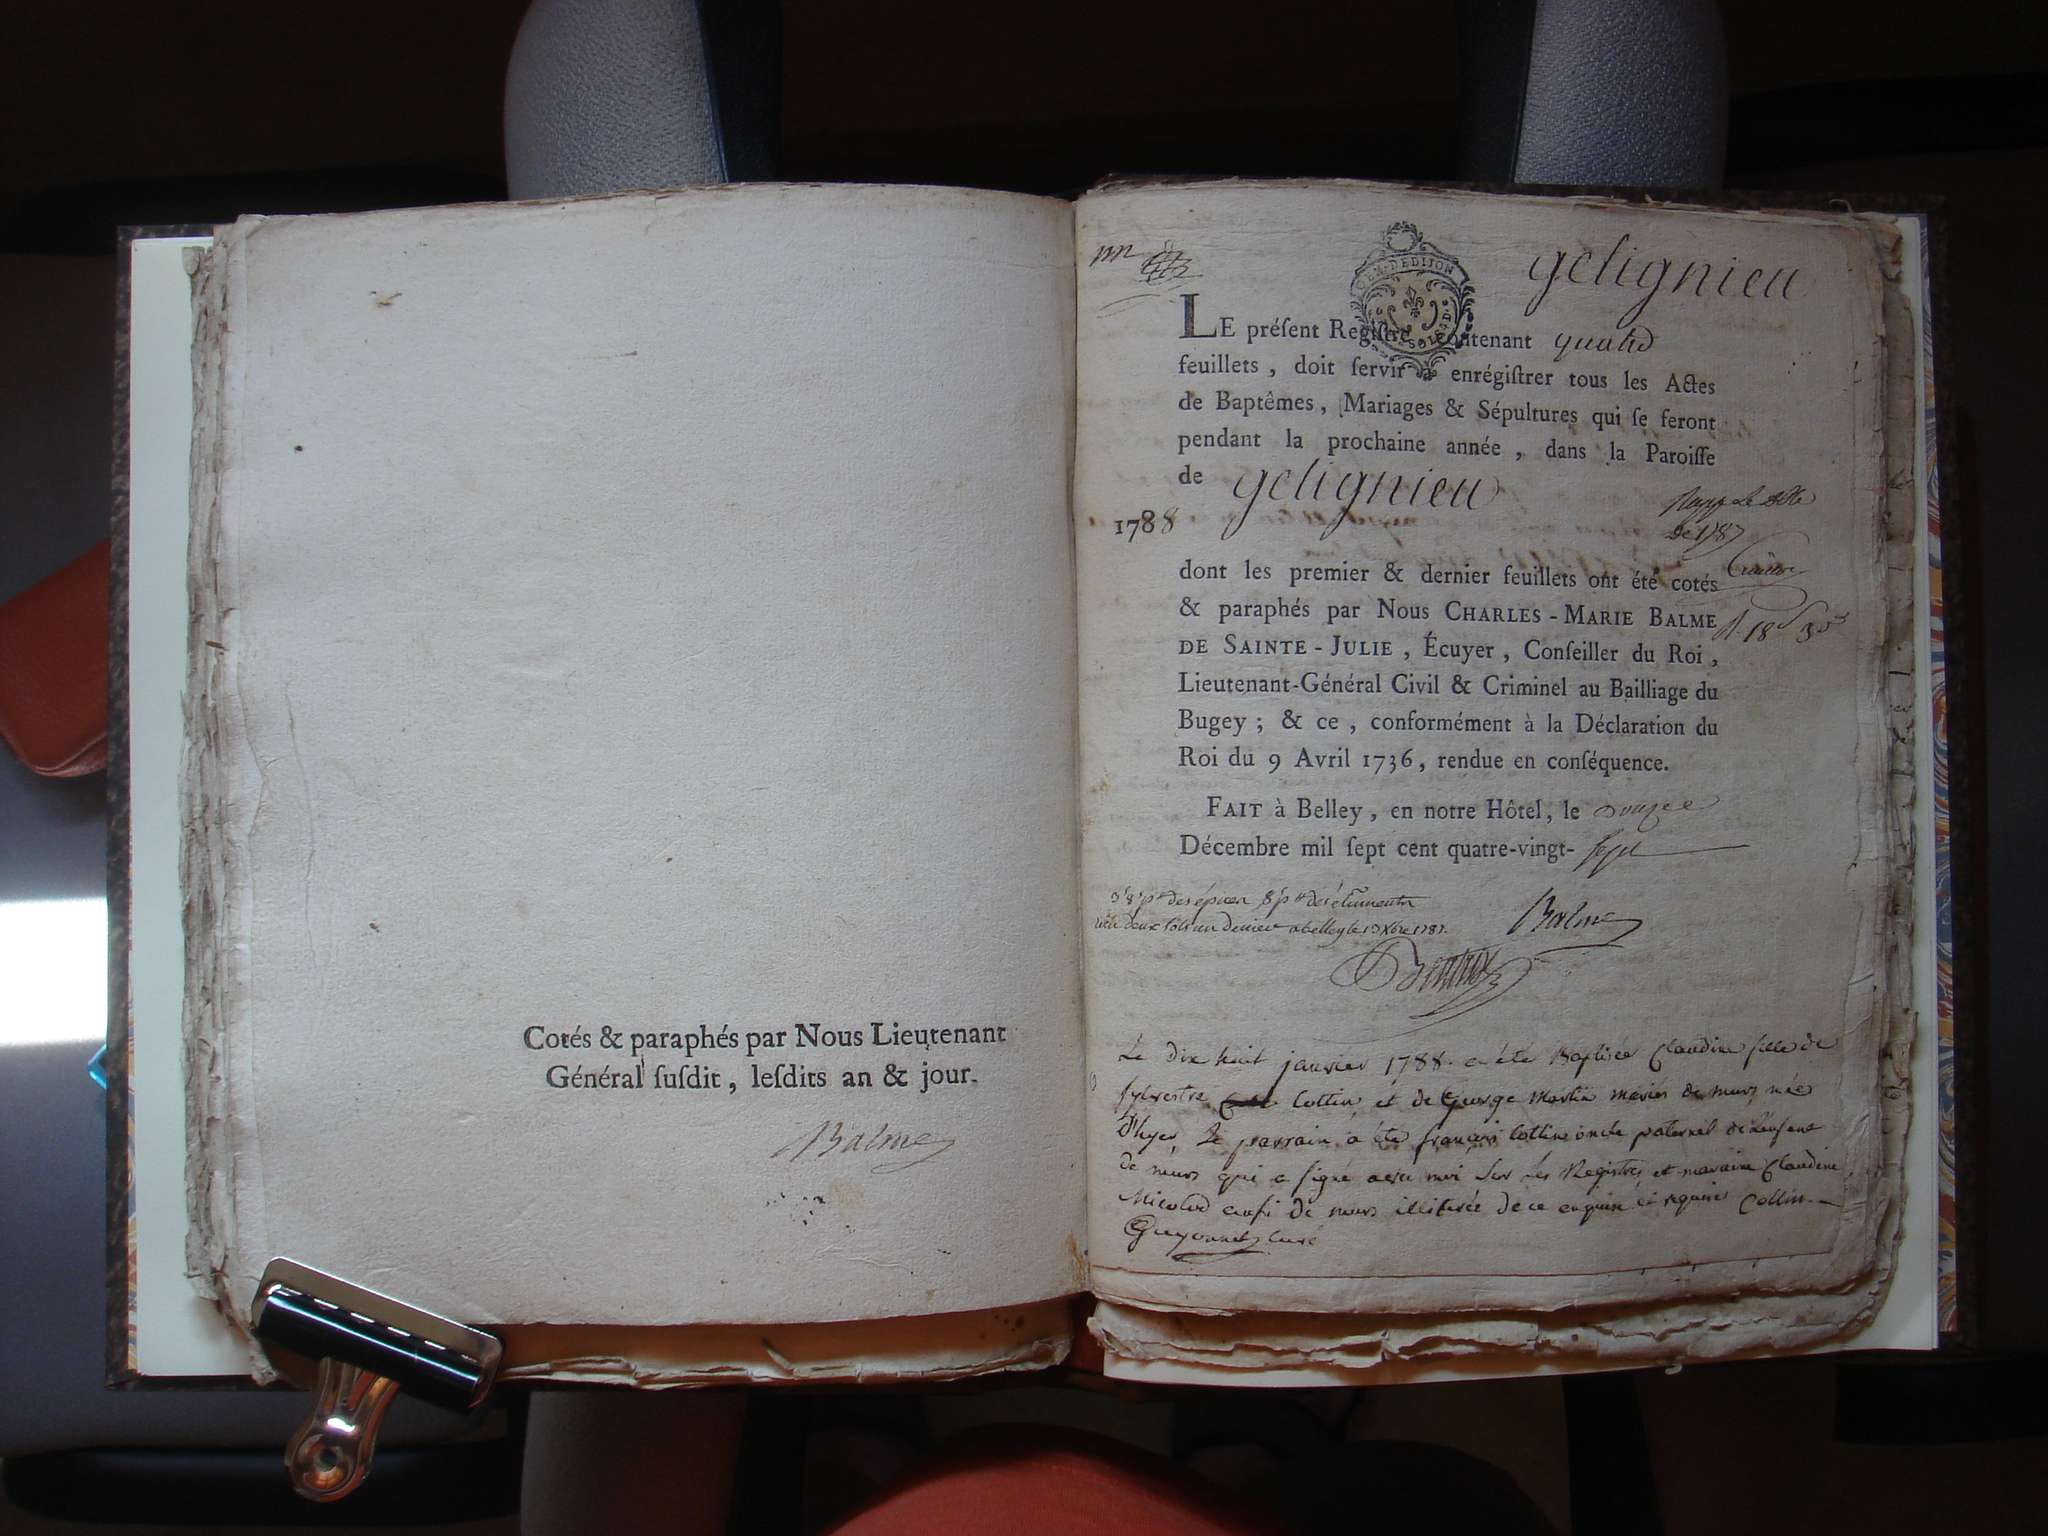 Cotés & paraphés par Nous Lieutenant
Général ſuſdit, leſdits an & jour.
Balme
GEN. DE DIJON
gelignieu
LE préſent Regiſtre, contenant quatre
feuillets, doit ſervir à enrégiſtrer tous les Actes
de Baptêmes, Mariages & Sépultures qui ſe feront
pendant la prochaine année, dans la Paroiſſe
de gelignieu
1788
de 1787
dont les premier & dernier feuillets ont été cotés
& paraphés par Nous CHARLES-MARIE BALME
DE SAINTE-JULIE, Écuyer, Conſeiller du Roi,
Lieutenant-Général Civil & Criminel au Bailliage du
Bugey; & ce, conformément à la Déclaration du
Roi du 9 Avril 1736, rendue en conſéquence.
FAIT à Belley, en notre Hôtel, le douzee
Décembre mil ſept cent quatre-vingt-ſept
deux sols un denier a belley le 13 Xbre 1787.
Balme
Le dix huit janvier 1788. a été Baptisée Claudine fille de
Sylvestre Cottin, et de George Martin mariés de murs, née
d'hyer, le parrain a été françois Cottin oncle paternel de l'enfant
de murs qui a signé avec moi sur les Registres et maraine Claudine
de murs illiterée de ce enquise et requise Cottin
Guyonnet curé